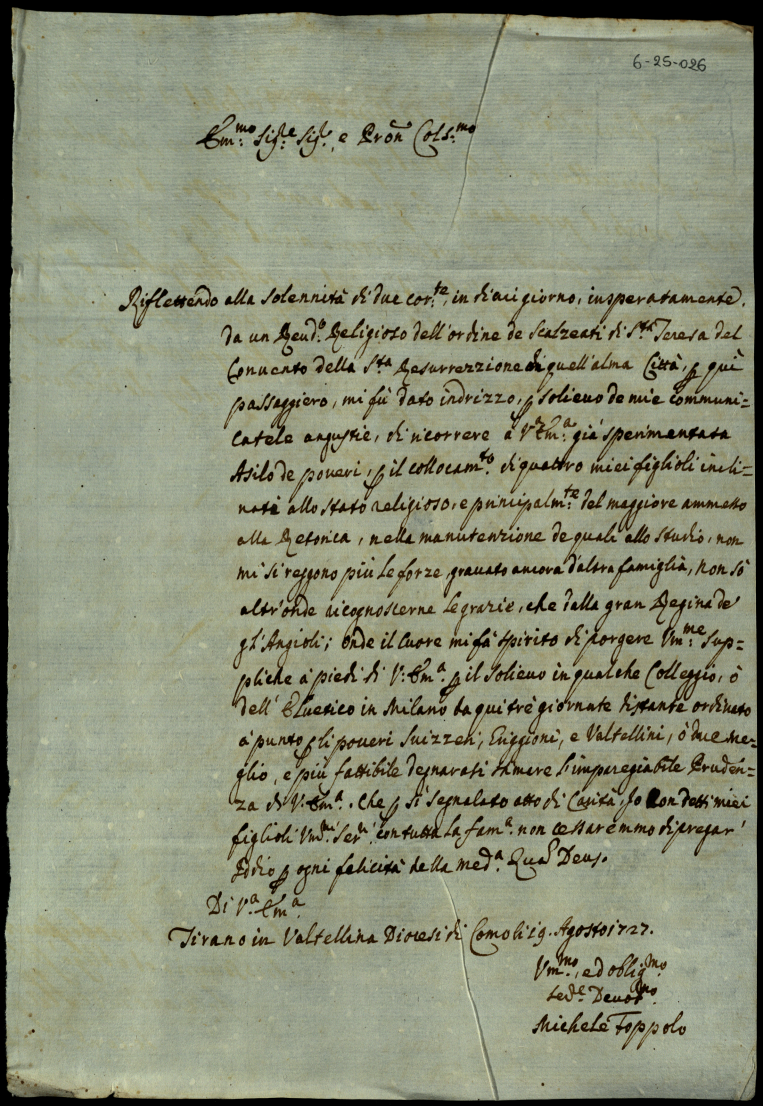 6-25-026
Em:mo Sig:e Sig:r, e Pron Col:mo
Riflettendo alla Solennità di due cor:te, in di cui giorno, insperatamente,
da un Reud:o Religioso dell'ordine de Scalzeati di S:ta Teresa del
Conuento della S:ta Resurrezzione di quell'alma Città, p qui
passaggiero, mi fù dato indrizzo, p solieuo de mie communi=
catele angustie, di ricorrere à V: Em:a già sperimentata
Asilo de poueri, p il collocam:to di quattro miei figlioli incli=
nati allo stato religioso, e principalm:te del maggiore ammesso
alla Retorica, nella manutenzione de quali allo studio, non
mi si reggono più le forze, grauato ancora d'altra famiglia, non sò
altr'onde ricognoscerne le grazie, che dalla gran Regina de
gl'Angioli; onde il Cuore mi fà spirito di porgere Vm:me Sup=
pliche à piedi di V: Em:a p il solieuo in qualche Colleggio, ò
dell'Eluetico in Milano da qui trè giornate distante ordinato
à punto p li poueri Suizzeri, Griggioni, e Valtellini, ò doue me=
glio, e più fattibile degnarasi l'imparegiabile Pruden=
za di V: Em:a. Che p sì segnalato atto di Carità, Io con detti miei
figlioli con tutta la fam:a non cessaremmo di pregar'
Iddio p ogni felicità della med:a Deus.
Di V:a Em:a
Tirano in Valtellina Diocesi di Como li 19. Agosto 1727.
Vm:mo, ed oblig:mo
Ser:e Deuot:mo
Michele Foppolo